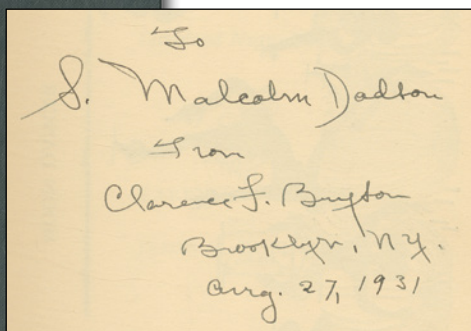 To
S. Malcolm Dodson
From
Clarence F. Buxton
Brooklyn, N.Y.
Aug. 27, 1931